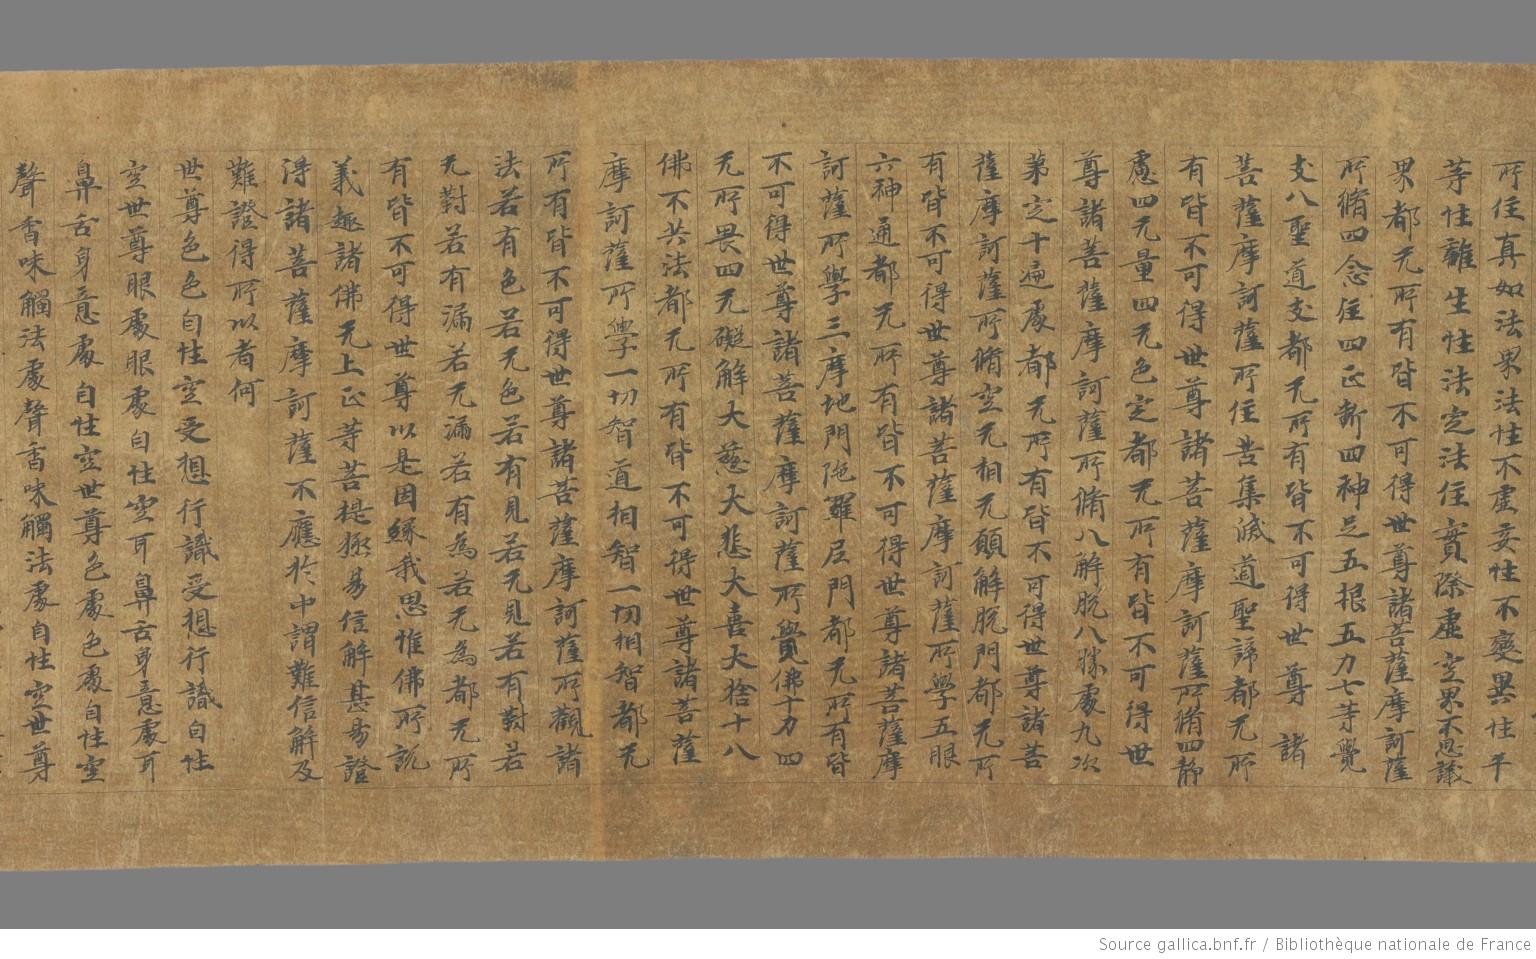 所住真如法界法性不虛妄性不變異性平
等性離生性法定法住實際虛空界不思議
界都无所有皆不可得世尊諸菩薩摩訶薩
所脩四念住四正斷四神足五根五力七等覺
支八聖道支都无所有皆不可得世尊諸
菩薩摩訶薩所住苦集滅道聖諦都无所
有皆不可得世尊諸菩薩摩訶薩所脩四靜
慮四无量四无色定都无所有皆不可得世
尊諸菩薩摩訶薩所脩八解脫八勝處九次
第定十遍處都无所有皆不可得世尊諸菩
薩摩訶薩所脩空无相无願解脫門都无所
有皆不可得世尊諸菩薩摩訶薩所學五眼
六神通都无所有皆不可得世尊諸菩薩摩
訶薩所學三摩地門陁羅尼門都无所有皆
不可得世尊諸菩薩摩訶薩所覺佛十力四
无所畏四无礙解大慈大悲大喜大捨十八
佛不共法都无所有皆不可得世尊諸菩薩
摩訶薩所學一切智道相智一切相智都无
所有皆不可得世尊諸菩薩摩訶薩所觀諸
法若有色若无色若有見若无見若有對若
无對若有漏若无漏若有為若无為都无所
有皆不可得世尊以是因緣我思惟佛所說
義趣諸佛无上正等菩提極易信解甚易證
得諸菩薩摩訶薩不應於中謂難信解及
難證得所以者何
世尊色色自性空受想行識受想行識自性
空世尊眼處眼處自性空耳鼻舌身意處耳
鼻舌身意處自性空世尊色處色處自性空
聲香味觸法處聲香味觸法處自性空世尊
Source gallica.bnf.fr / Bibliothèque nationale de France